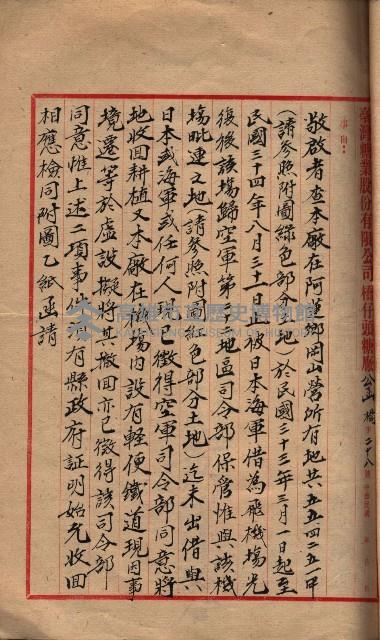 臺灣糖業股份有限公司橋仔頭糖廠公函 橋 字第二十八號
事由:
敬啟者查本廠在阿蓮鄉岡山營所有地共五五四二五一甲
(請參照附圖綠色部分土地)於民國三十三年三月一日起至
民國三十四年八月三十一日止被日本海軍借為飛機場光
復後該場歸空軍第三地區司令部保管惟與該機
場毗連之地(請參照附圖綠色部分土地)迄未出借與
日本或海軍或任何人現已徵得空軍司令部同意將
地收回耕植又本廠在該場內設有輕便鐵道現因事
境遷等於虛設擬將其撤回亦已徵得該司令部
同意惟上述二項事件須有縣政府証明始允收回
相應檢同附圖乙紙函請
高雄市立歷史博物館